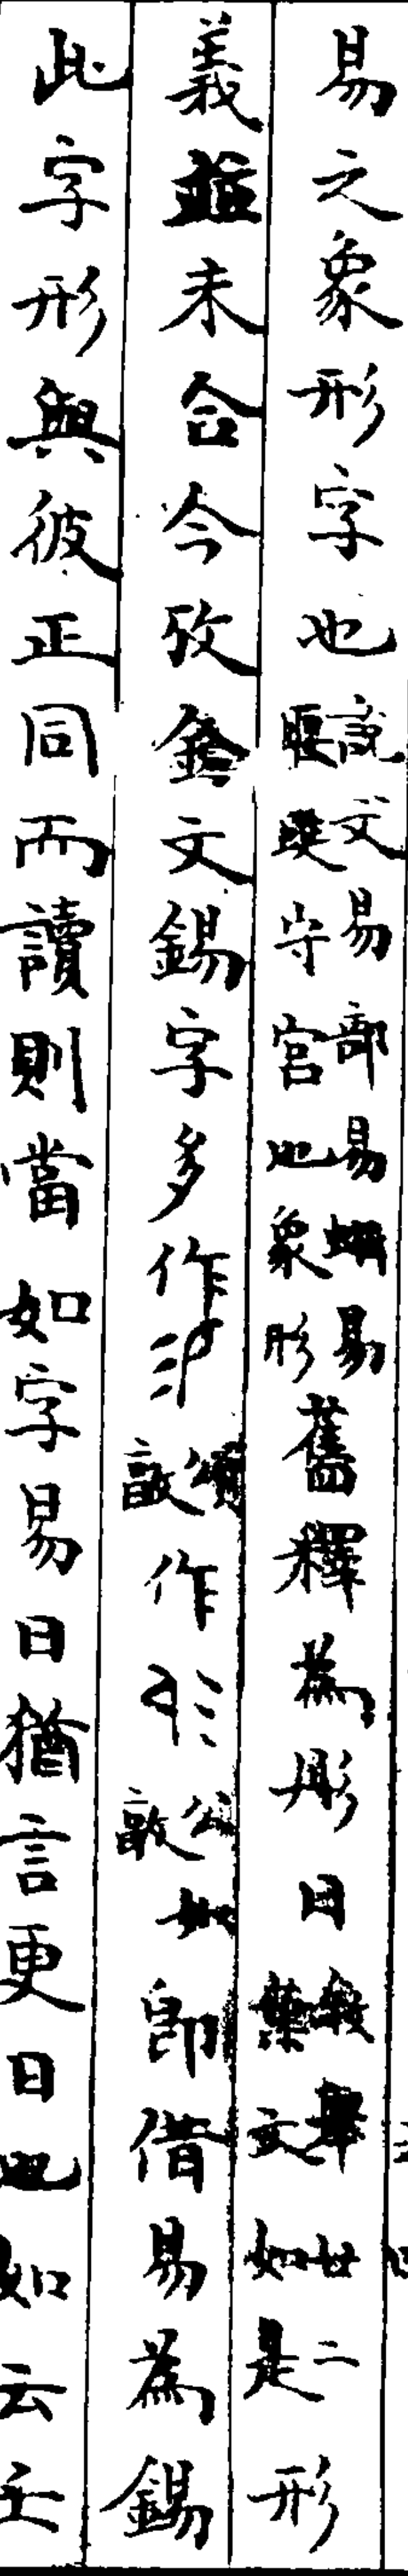 易之象形字也說文易部易蜥易蝘蜓守宮也象形舊釋為彤日殷契廿二葉文如是形
義並未合今攷金文錫字多作頌敦作公姞敦即借易為錫
此字形與彼正同而讀則當如字易日猶言更日也如云壬